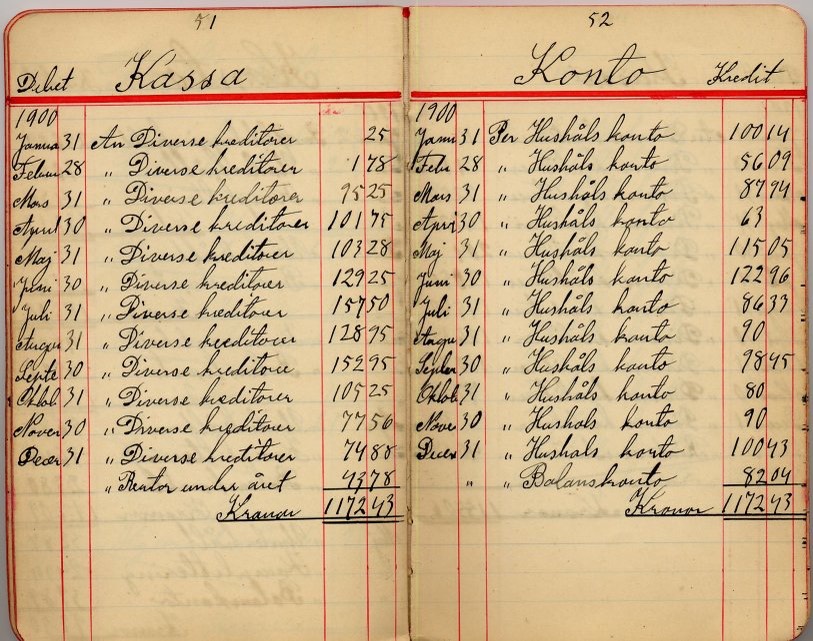 51
Debet Kassa
1900
Janua 31 An Diverse kreditorer 25
Februa 28 " Diverse kreditorer 1 78
Mars 31 " Diverse kreditorer 95 25
April 30 " Diverse kreditorer 101 75
Maj 31 " Diverse kreditorer 103 28
Juni 30 " Diverse kreditorer 129 25
Juli 31 " Diverse kreditorer 157 50
Augu 31 " Diverse kreditorer 128 95
Septe 30 " Diverse kreditorer 152 95
Oktob 31 " Diverse kreditorer 105 25
Novem 30 " Diverse kreditorer 77 56
Decem 31 " Diverse kreditorer 74 88
" Rentor under året 43 78
Kronor 1172 43
52
Konto Kredit
1900
Janu 31 Per Hushåls konto 100 14
Febr 28 " Hushåls konto 56 09
Mars 31 " Hushåls konto 87 94
Apri 30 " Hushåls konto 63
Maj 31 " Hushåls konto 115 05
Juni 30 " Hushåls konto 122 96
Juli 31 " Hushåls konto 86 33
Augu 31 " Hushåls konto 90
Septe 30 " Hushåls konto 98 45
Oktob 31 " Hushåls konto 80
Nove 30 " Hushåls konto 90
Decem 31 " Hushåls konto 100 43
" " Balanskonto 82 04
Kronor 1172 43